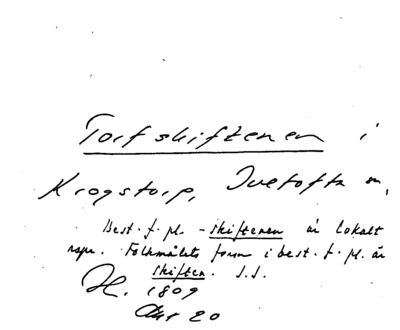 Torfskiftenen i
Krogstorp, Tvetofta sn,
Best. f. pl. -skiftenen är lokalt
repr. Folkmålets form i best. f. pl. är
skiften. S.S.
H. 1809
Akt 20